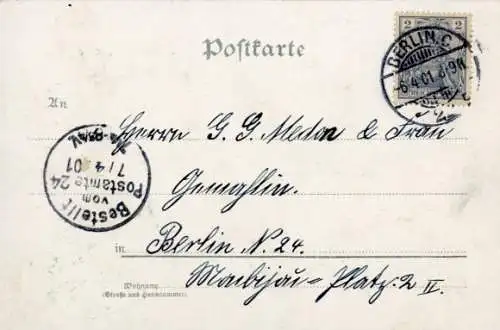 Postkarte
2 2
BERLIN, C.
6.4.01.
An
Herrn G. G. Medon & Frau
Gemahlin.
Bestellt
vom
Postamte 24
7/4 01
in Berlin N. 24.
Monbijou-Platz. 2 II.
Wohnung
(Straße und Hausnummer)